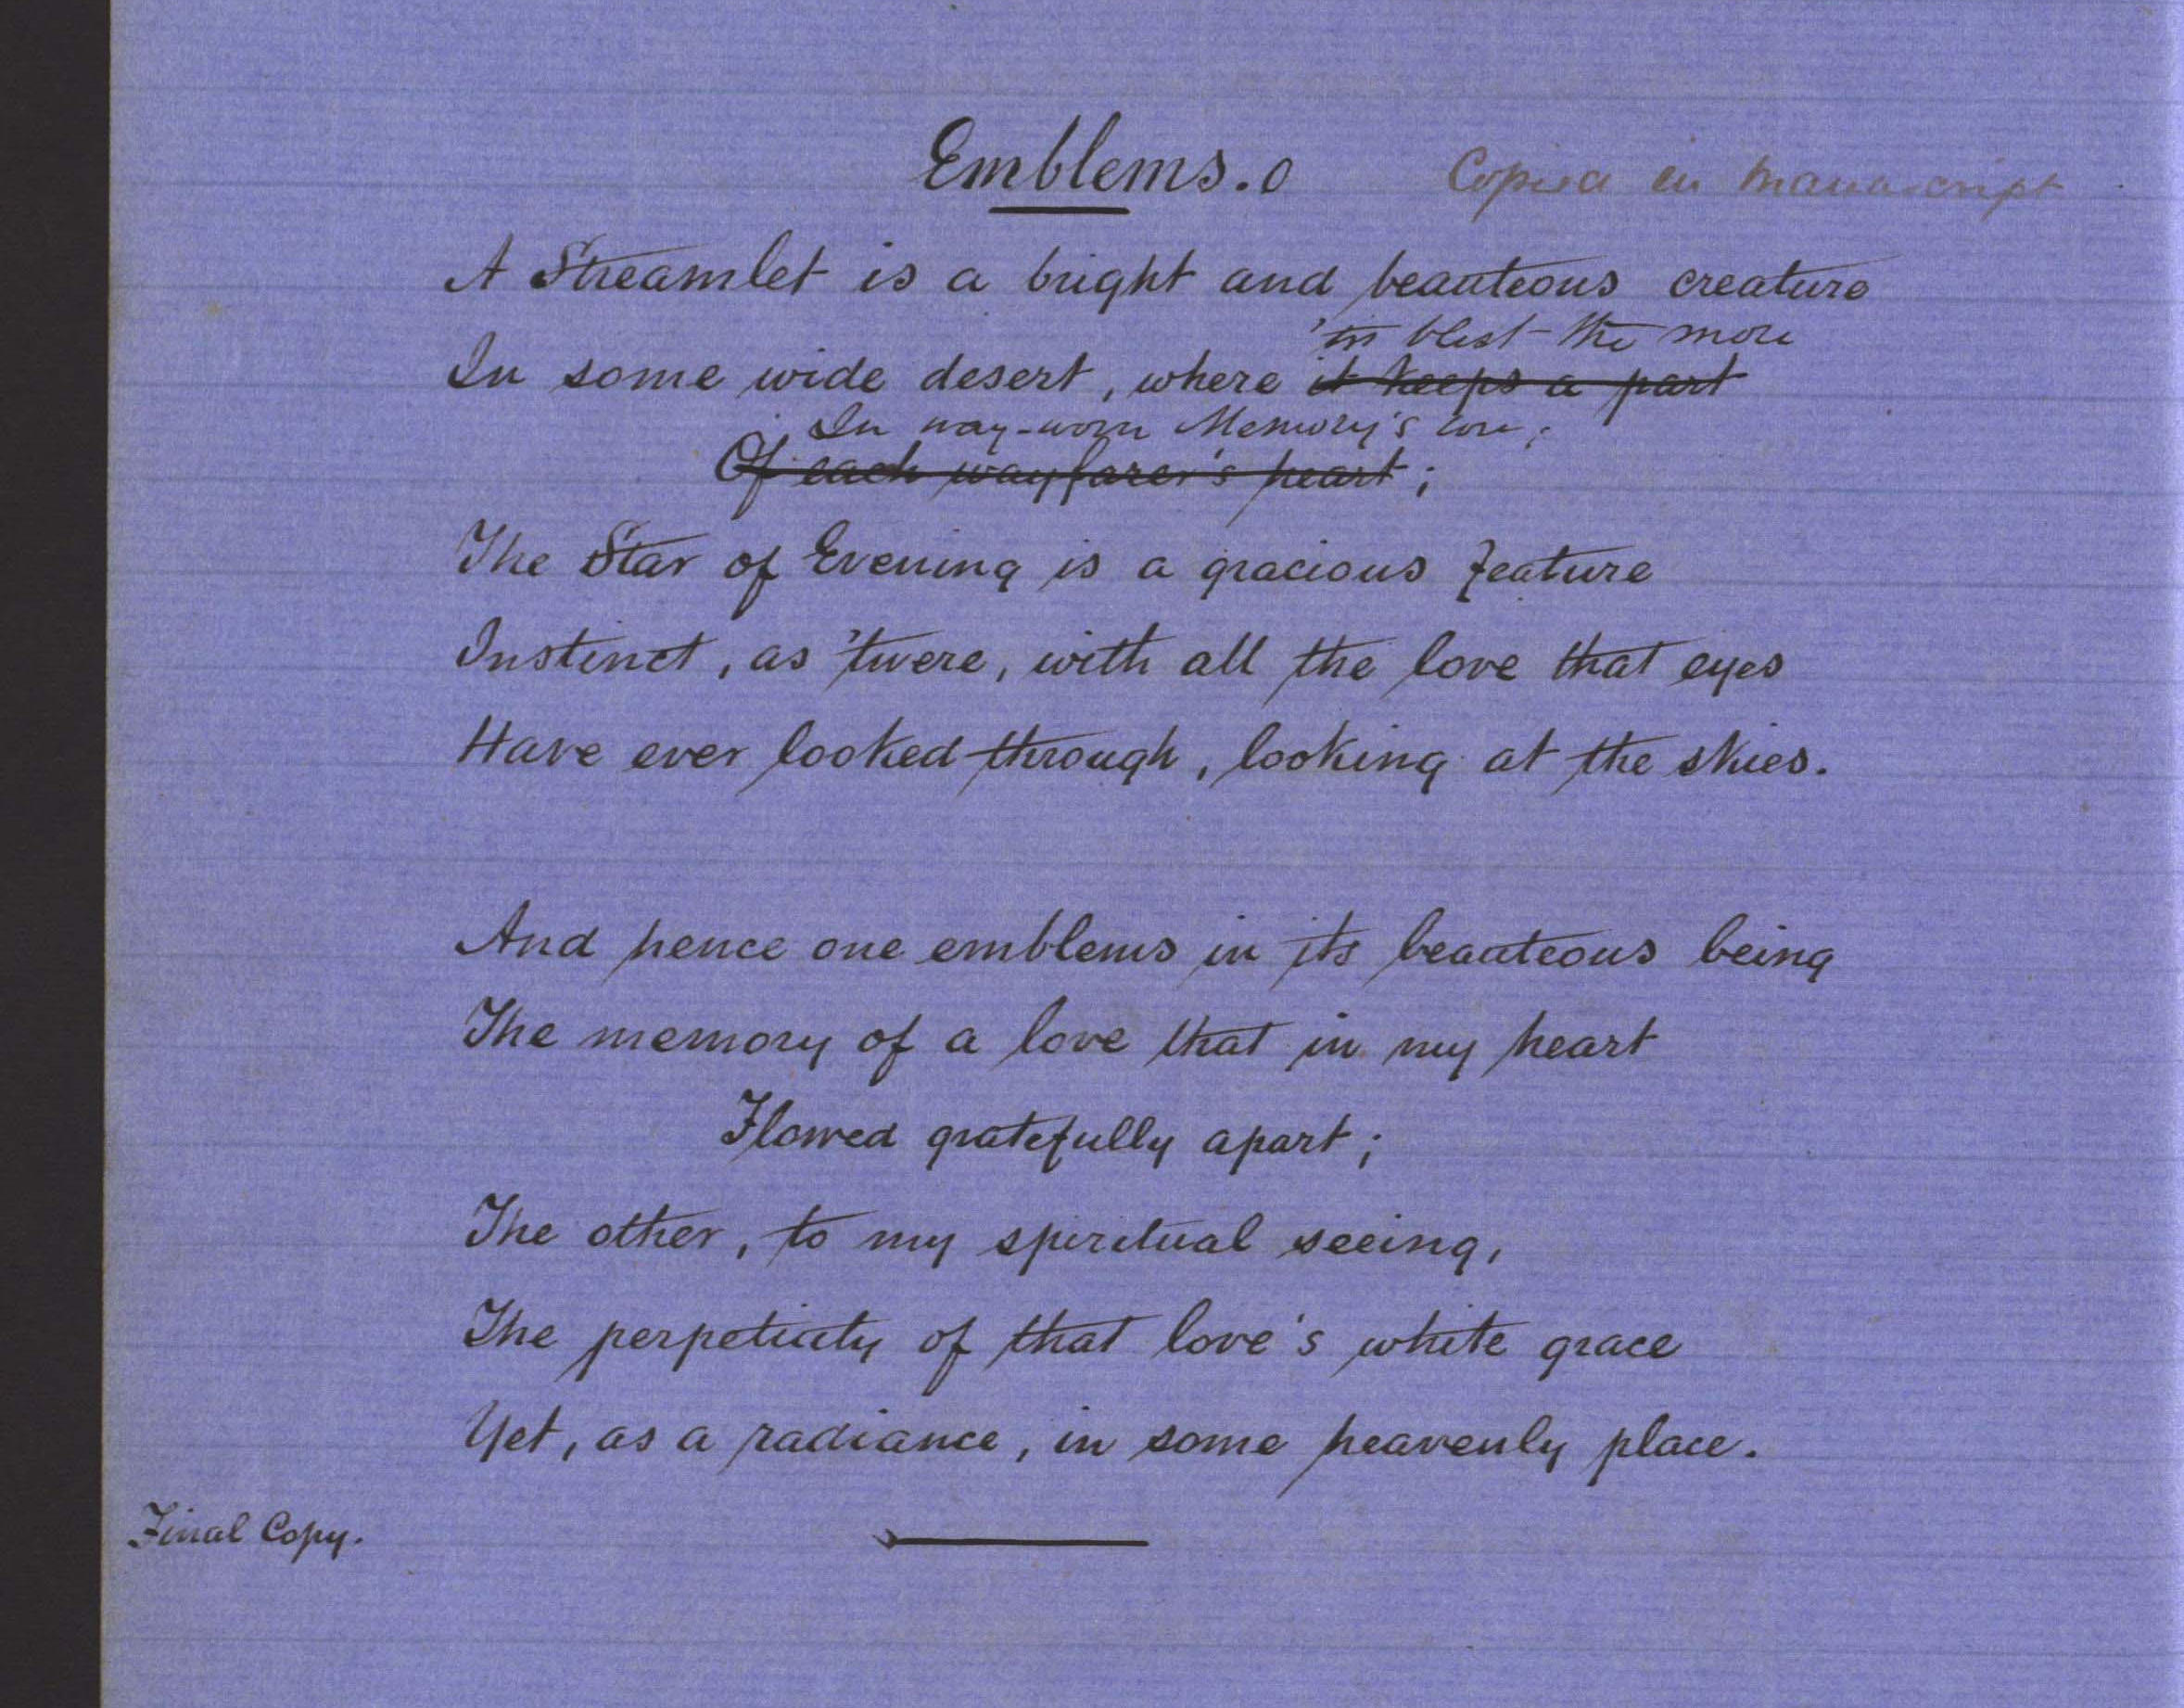 Emblems. o Copied in Manuscript
A Streamlet is a bright and beauteous creature
'tis blest the more
In some wide desert, where it keeps a part
In way-worn Memory's lore;
Of each wayfarer's heart;
The Star of Evening is a gracious feature
Instinct, as 'twere, with all the love that eyes
Have ever looked through, looking at the skies.
And hence one emblems in its beauteous being
The memory of a love that in my heart
Flowed gratefully apart;
The other, to my spiritual seeing,
The perpetuity of that love's white grace
Yet, as a radiance, in some heavenly place.
Final Copy.